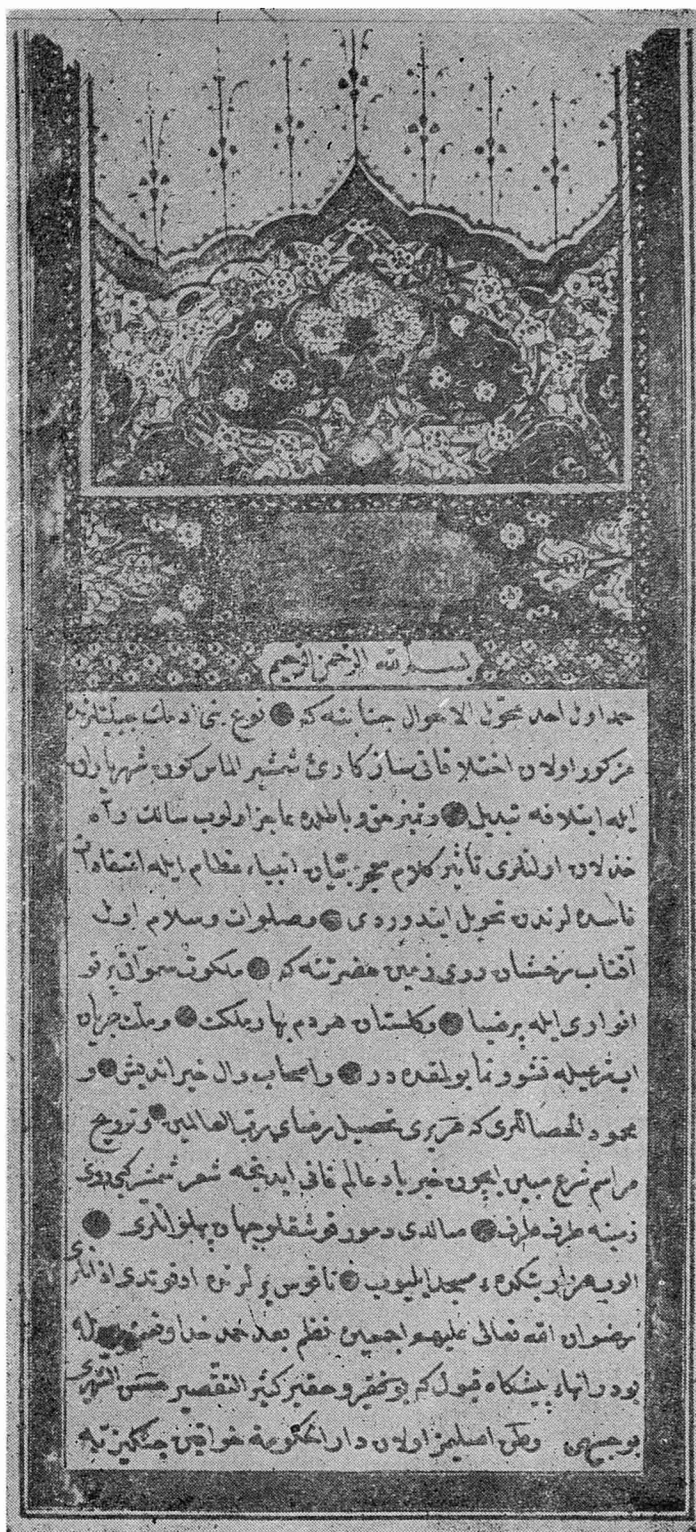 بسم الله الرحمن الرحيم
حمد اول احد محول الاحوال جنابنه كه ● نوع بنى ادمك جبلتلرنده
مركوز اولان اختلافاتى سازكارئ شمشير الماس كون شهرياران
ايله ايتلافه تبديل ● وتميز حق وباطلده عاجز اولوب سالك راه
خذلان اولنلرى تأثير كلام معجز بيان انبياء عظام ايله
فاسده لرندن تحويل ايتدوردى ● وصلوات وسلام اول
آفتاب درخشان روى زمين حضرتنه كه ● ملكوت سمواتى پرتو
انوارى ايله پرضيا ● وكلستان هردم بهار ملكت ● وملت
ايله نشو ونما بولمقده در ● واصحاب وال خير انديش ● و
محمود الخصاللرى كه هر برى تحصيل رضاى رب العالمين ● وترويج
مراسم شرع مبين ايچون خير باد عالم فانى ايدنجه شعر شمشير كبى روى
زمينه طرف طرف ● صالدى دمور قوشقلو جهان پهلوانلرى ●
الوب هزار بتكده يى مسجد ايليوب ● ناقوس يرلرنده اوقوتدى اذانلرى
رضوان الله تعالى عليهم اجمعين نظم بعد حمد خدا ونعت
بودر انهاء پيشكاه قبول كم بو فقير وحقير كثير التقصير
بوجيهى وطن اصليمز اولان دار الحكومة خواقين چنكيزيه